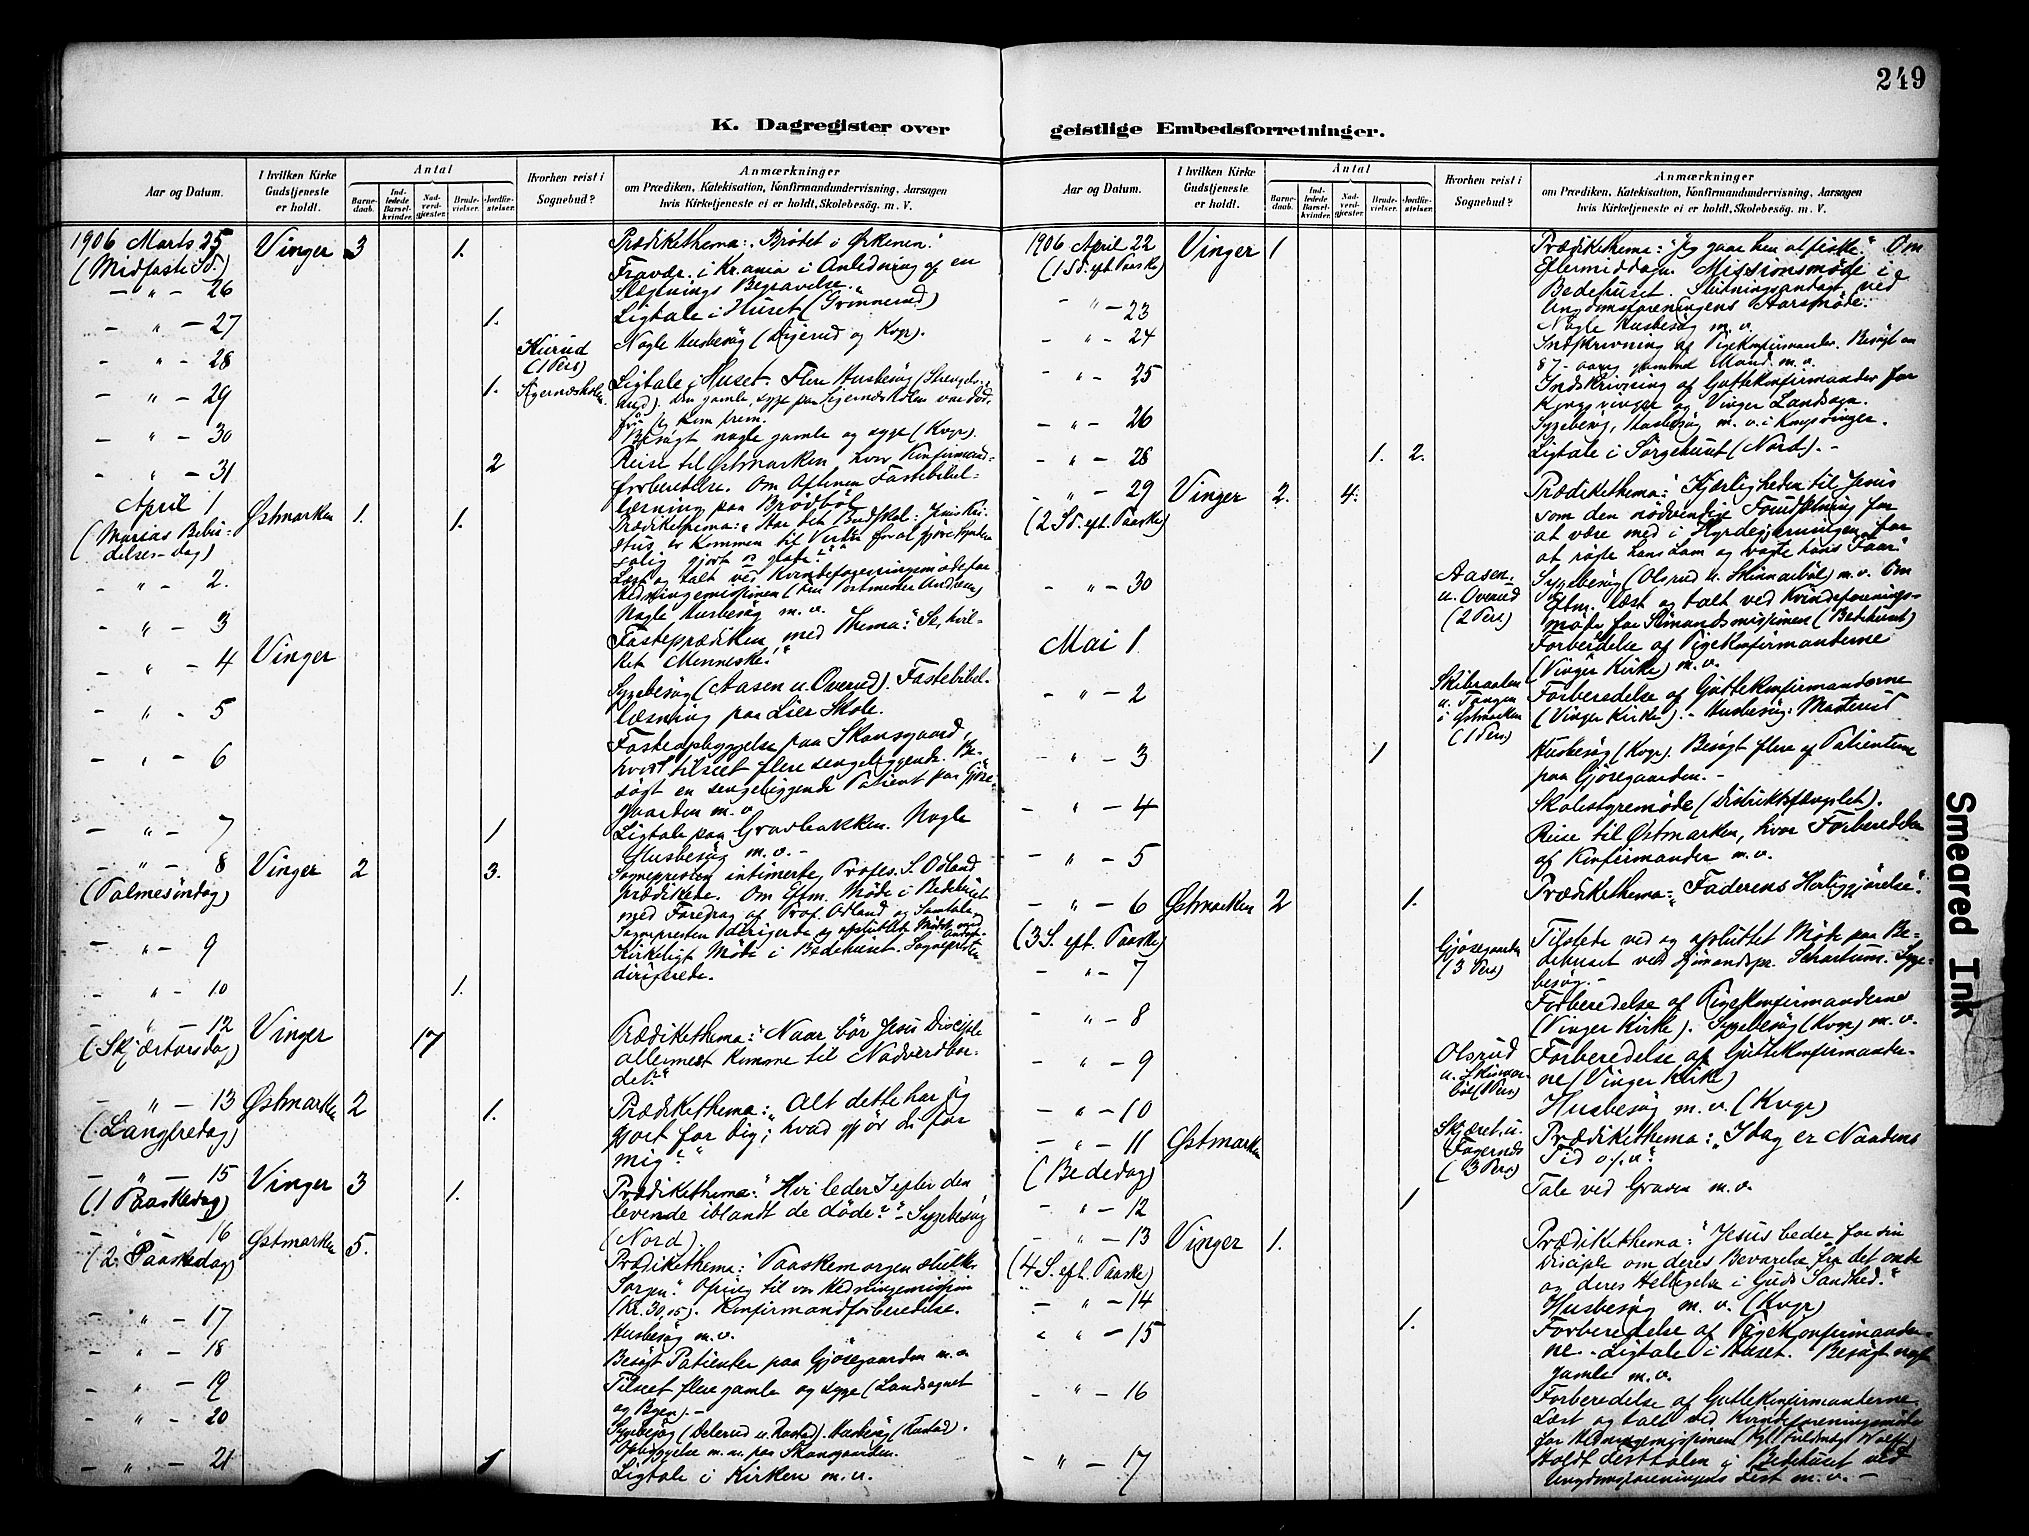 249
K. Dagregister over geistlige Embedsforretninger.
Aar og Datum.
I hvilken Kirke Gudstjeneste er holdt.
Antal
Barnedaab.
Indledede Barselkvinder.
Nadverdgjester.
Brudevielser.
Jordfæstelser.
Hvorhen reist i Sognebud?
Anmærkninger
om Prædiken, Katekisation, Konfirmandundervisning, Aarsagen
hvis Kirketjeneste ei er holdt, Skolebesøg. m. V.
1906 Marts 25 Vinger 3 1. Prædikethema: "Brødet i Ørkenen."
(Midfaste Sd.)
— " — 26 Fravær. i Krania i Anledning af en
Slægtnings Begravelse.
— " — 27 1. Ligtale i Huset (Grinnerud)
— " — 28 Kurud (1 Pers) Nogle Husbesøg (Digerud og Kvgr).
— " — 29 1. Ligtale i Huset. Flere Husbesøg
før jeg kom frem.
— " — 30 Besøgt nogle gamle og syge (Kvgr).
— " — 31 2 Reise til Østmarken, hvor Konfirmand-
forberedelse. Om Aftenen Fastebibel-
læsning paa Brødbøl
April 1 Østmarken 1. 1.
(Marias Bebu-
delses-dag)
salig gjort
— " — 2. Læst og talt ved Kvindeforeningsmøde for
Hedningemissionen
— " — 3 Nogle Husbesøg m. v.
— " — 4 Vinger Fasteprædiken med Thema: "Se, hvil-
ket Menneske!"
— " — 5 Sygebesøg (Aasen u. Overud). Fastebibel-
læsning paa Lier Skole.
— " — 6 Fasteopbyggelse paa Skansgaard,
hvor tilseet flere sengeliggende. Be-
søgt en sengeliggende Patient paa Gjøse-
gaarden m. v.
— " — 7 1 Ligtale paa Gravbakken. Nogle
Husbesøg m. v. —
— " — 8 Vinger 2 3. Sognepresten intimerte, Profes. S. Odland
(Palmesøndag) prædikede. Om Eftm. Møde i Bedehuset
med Foredrag af Prof. Odland og Samtale.
Sognepresten dirigerede og afsluttet Mødet
— " — 9 Kirkeligt Møde i Bedehuset. Sognepresten
dirigerede.
— " — 10 1.
— " — 12 Vinger 17 Prædikethema: "Naar bør Jesu Disciple
(Skjærtorsdag) allermest komme til Nadverdbor-
det?"
— " — 13 Østmarken 2 1. Prædikethema: "Alt dette har jeg
(Langfredag) gjort for dig; hvad gjør du for
mig?"
— " — 15 Vinger 3 1. Prædikethema: "Hvi leder I efter den
(1 Paaskedag) levende iblandt de døde?" — Sygebesøg
(Nord).
— " — 16 Østmarken 5. Prædikethema: "Paaskemorgen slukker
(2. Paaskedag) Sorgen." Ofring til
(Kr. 30,05). Konfirmandforberedelse.
— " — 17 Husbesøg m. v.
— " — 18 Besøgt Patienter paa Gjøsegaarden m. v
— " — 19 Tilseet flere gamle og syge (Landsognet
og Byen). —
— " — 20 Sygebesøg
Opbyggelse m. m. paa Skansgaarden.
— " — 21 1 Ligtale i Kirken m. v.
Aar og Datum.
I hvilken Kirke Gudstjeneste er holdt.
Antal
Barnedaab.
Indledede Barselkvinder.
Nadverdgjester.
Brudevielser.
Jordfæstelser.
Hvorhen reist i Sognebud?
Anmærkninger
om Prædiken, Katekisation, Konfirmandundervisning, Aarsagen
hvis Kirketjeneste ei er holdt, Skolebesøg. m. V.
1906 April 22 Vinger 1 Prædikethema: "Jeg gaar hen at fiske." Om
(1 Sd. eft. Paaske) Eftermiddagen Missionsmøde i
Bedehuset. Slutningsandagt ved
Ungdomsforeningens Aarsmøde.
— " — 23 Nogle Husbesøg m. v.
— " — 24 Indskrivning af Pigekonfirmander. Besøgt en
87-aarig gammel Mand m. v.
— " — 25 Indskrivning af Guttekonfirmander for
Kongsvinger og Vinger Landsogn.
— " — 26 Sygebesøg, Husbesøg m. v. i Kongsvinger.
— " — 28 1. 2. Ligtale i Sørgehuset (Nord). —
— " — 29 Vinger 2. 4. Prædikethema: "Kjærligheden til Jesus
(2 Sd. eft. Paaske) som den nødvendige Forudsætning for
at være med i Hyrdegjerningen, for
at røgte hans Lam og vogte hans Faar."
— " — 30 Aasen u. Overud (2 Pers) Sygebesøg (Olsrud u. Skinnarbøl) m. v. Om
Eftm. læst og talt ved Kvindeforenings-
møde for Sømandsmissionen (Bedehuset)
Mai 1 Forberedelse af Pigekonfirmanderne
(Vinger Kirke) m. v.
— " — 2 i Østmarken (1 Pers) Forberedelse af Guttekonfirmanderne
(Vinger Kirke). — Husbesøg: Masterud
— " — 3 1 Husbesøg (Kvgr). Besøgt flere af Patienterne
paa Gjøsegaarden. —
— " — 4 Skolestyremøde (Distriktsfængslet).
— " — 5 Reise til Østmarken, hvor Forberedelse
af Konfirmander m. v.
— " — 6 Østmarken 2 1. Prædikethema: "Faderens Herliggjørelse."
(3 S. eft. Paaske)
— " — 7 Gjøsegaarden (3 Pers) Tilstede ved og afsluttet Møde paa Be-
dehuset ved Sømandspr. Schartum. Syge-
besøg. —
— " — 8 Forberedelse af Pigekonfirmanderne
(Vinger Kirke). Sygebesøg (Kvgr) m. v.
— " — 9 Olsrud u. Skinnarbøl (1 Pers) Forberedelse af Guttekonfirmander-
ne (Vinger Kirke)
— " — 10 Husbesøg m. v. (Kvgr)
— " — 11 Østmarken Skjæret u. Fagernes (3 Pers) Prædikethema: "Idag er Naadens
(Bededag) Tid o. s. v."
— " — 12 1 Tale ved Graven m. v.
— " — 13 Vinger 1. Prædikethema: "Jesus beder for sine
(4 S. eft. Paaske) Disciple om deres Bevarelse fra det onde
og deres Helligelse i Guds Sandhed."
— " — 14 Husbesøg m. v. (Kvgr)
— " — 15 1. Forberedelse af Pigekonfirmander-
ne. Ligtale i Huset. Besøgt nogle
gamle m. v.
— " — 16 Forberedelse af Guttekonfirmanderne
Læst og talt ved Kvindeforeningsmøde
for Hedningemissionen
— " — 17 Holdt Festtalen i Bedehuset ved
Ungdomsforeningens Fest m. v. —
Smeared Ink